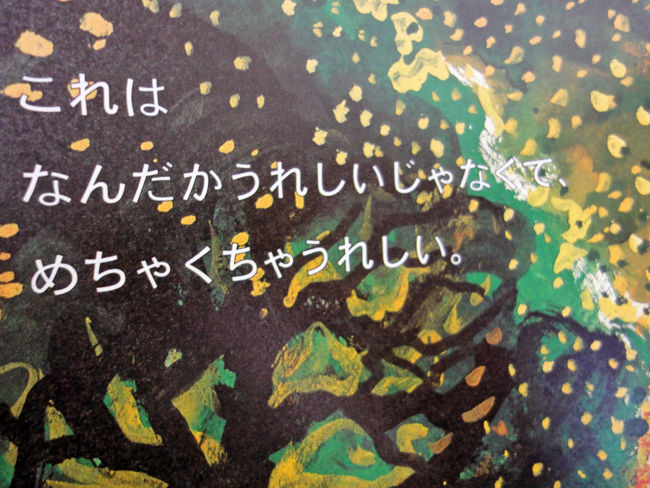 これは
なんだかうれしいじゃなくて、
めちゃくちゃうれしい。